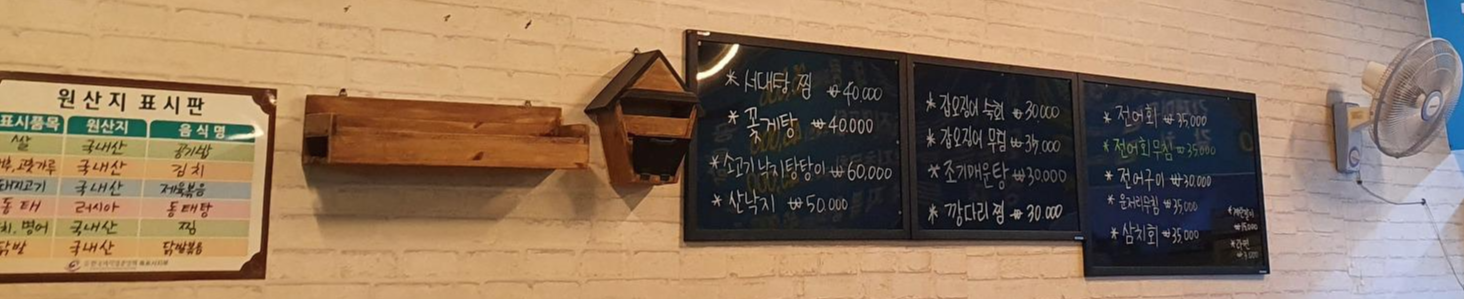 원산지 표시판
표시품목 원산지 음식명
쌀 국내산 공기밥
고춧가루 국내산 김치
돼지고기 국내산 제육볶음
동태 러시아 동태탕
병어 국내산 찜
닭발 국내산 닭발볶음
*서대탕.찜 ₩40,000
*꽃게탕 ₩40,000
*소고기낙지탕탕이 ₩60,000
*산낙지 ₩50,000
*갑오징어 숙회 ₩30,000
*갑오징어 무침 ₩35,000
*조기매운탕 ₩30,000
*깡다리찜 ₩30,000
*전어회 ₩35,000
*전어회무침 ₩35,000
*전어구이 ₩30,000
*운저리무침 ₩35,000
*삼치회 ₩35,000